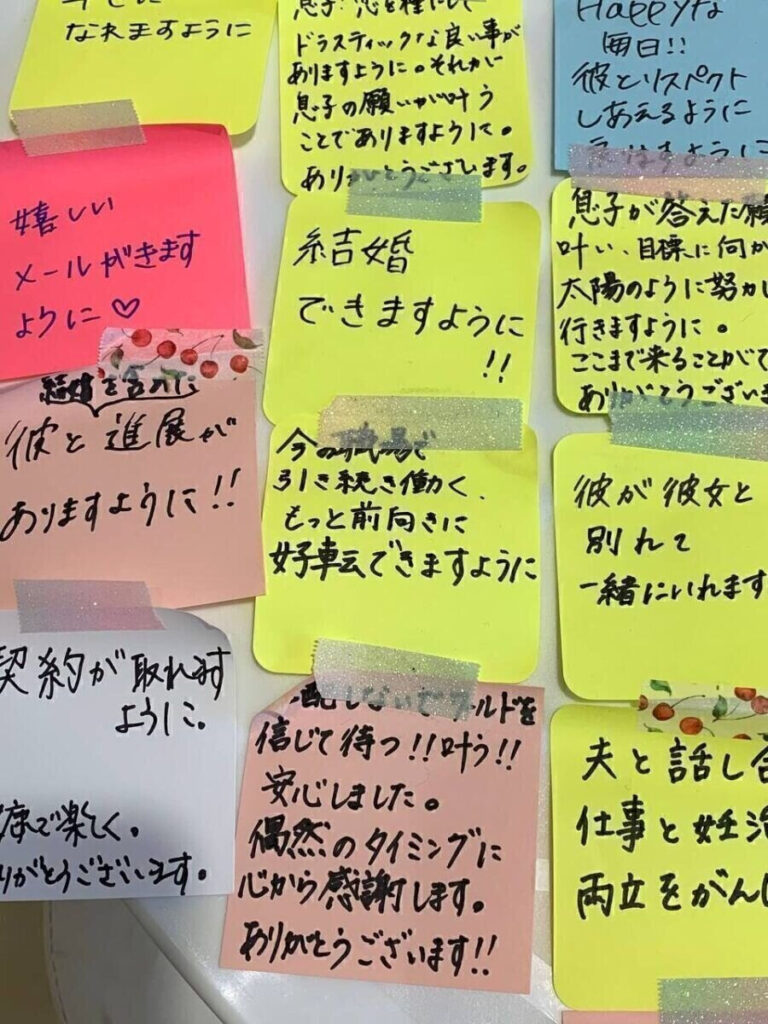 なれますように
ドラスティックな良い事が
ありますように。それが
息子の願いが叶う
ことでありますように。
ありがとうございます。
Happyな
毎日!!
彼とリスペクト
しあえるように
嬉しい
メールがきます
ように♡
結婚
できますように
!!
息子が答えた願
叶い、目標に向か
太陽のように努力し
行きますように。
ここまで来ることがで
ありがとうございま
結婚を含めた
彼と進展が
ありますように!!
今の職場で
引き続き働く、
もっと前向きに
好転できますように
彼が彼女と
別れて
一緒にいれます
契約が取れます
ように。
康で楽しく。
りがとうございます。
配しないで ールドを
信じて待つ!!叶う!!
安心しました。
偶然のタイミングに
心から感謝します。
ありがとうございます!!
夫と話し合
仕事と妊治
両立をがんば